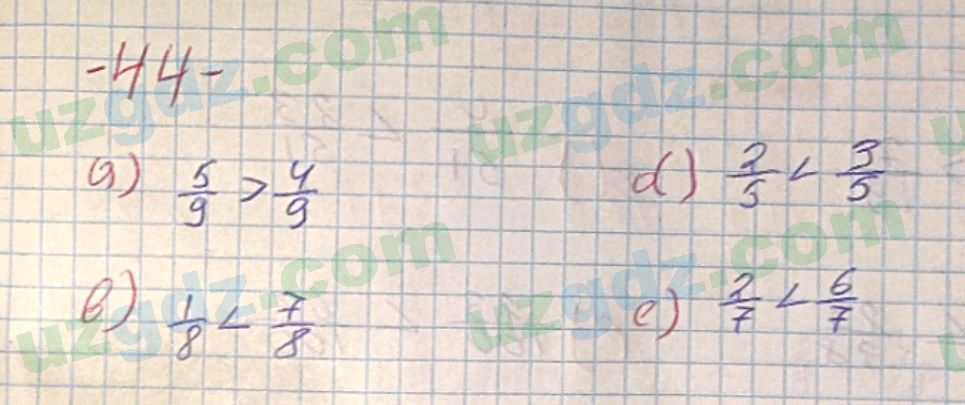 -44-
a) 5/9 > 4/9
d) 2/5 < 3/5
b) 1/8 < 7/8
e) 2/7 < 6/7
uzgdz.com
uzgdz.com
uzgdz.com
uzgdz.com